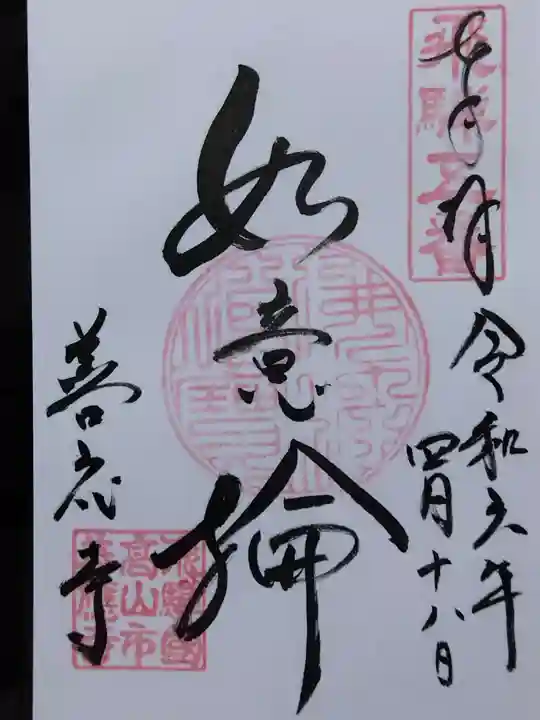 飛騨五番
令和六年
四月十八日
如意輪
善応寺
飛騨國
高山市
善應寺